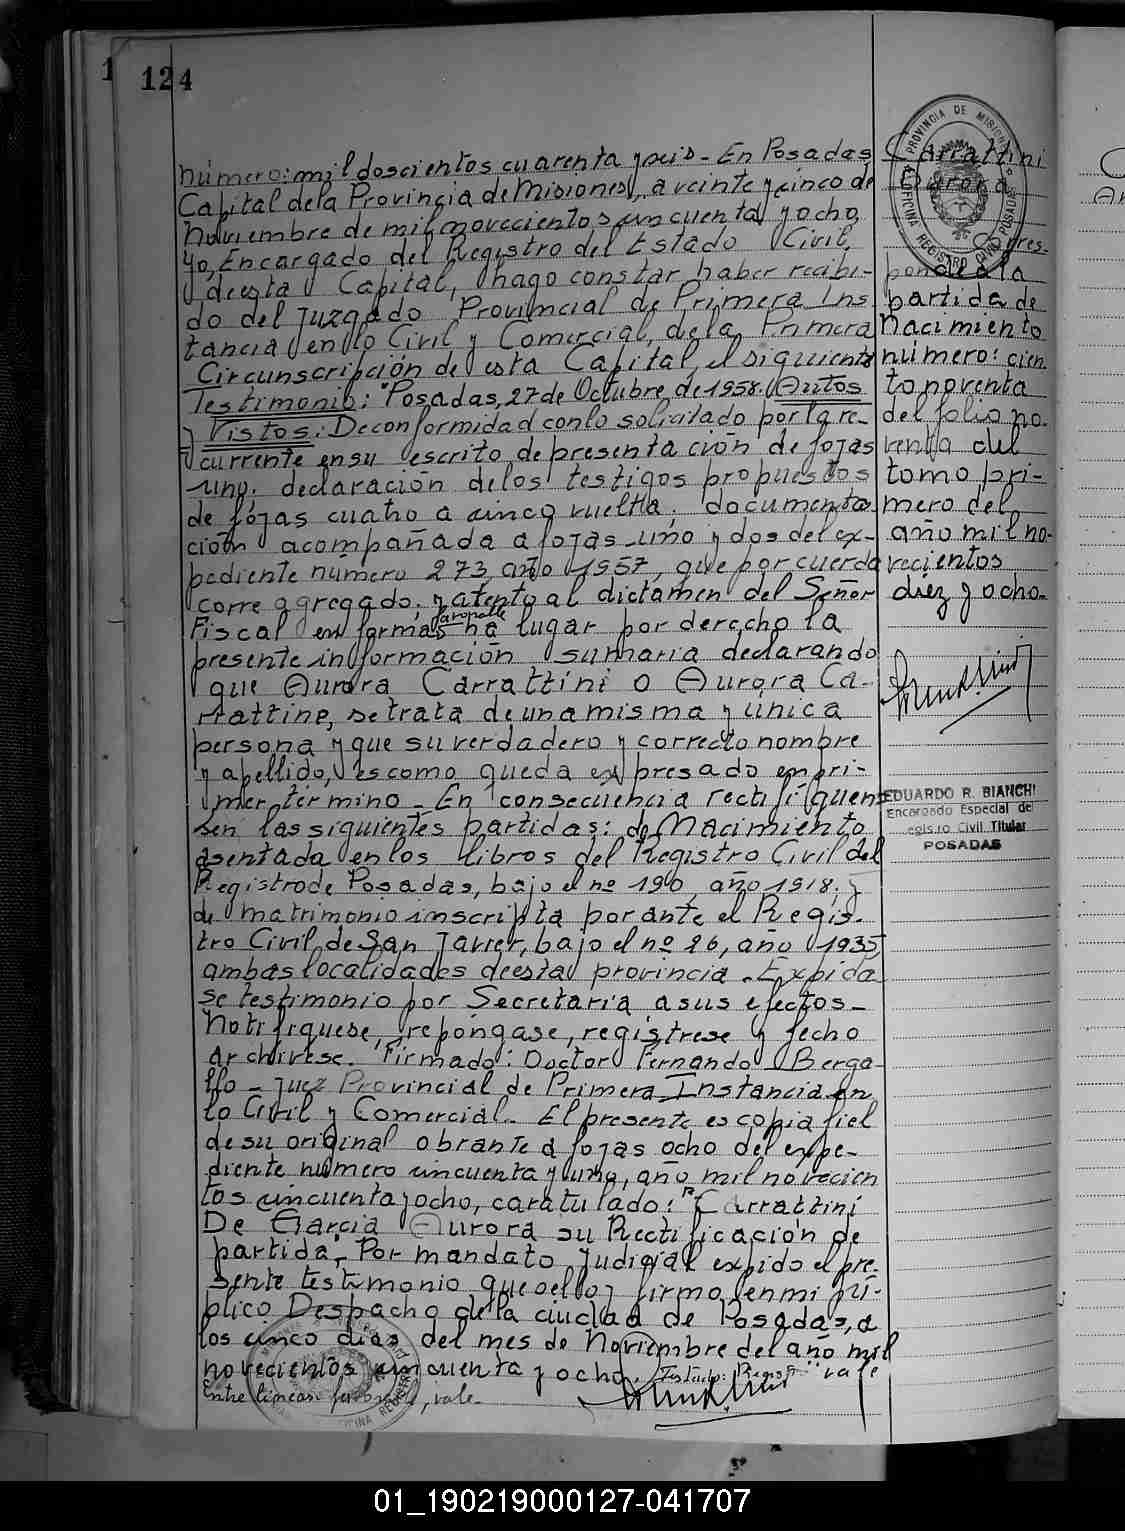 124
Número: mil doscientos cuarenta y seis - En Posadas
Capital de la Provincia de Misiones, a veinte y cinco de
Noviembre de mil novecientos cincuenta y ocho,
yo, Encargado del Registro del Estado Civil,
de esta Capital, hago constar haber recibi-
do del Juzgado Provincial de Primera Ins
tancia en lo Civil y Comercial, de la Primera
Circunscripción de esta Capital, el siguiente
Testimonio: "Posadas, 27 de Octubre de 1958. Autos
y Vistos: De conformidad con lo solicitado por la re-
currente en su escrito de presentación de fojas
uno, declaración de los testigos propuestos
de fojas cuatro a cinco vuelta, documenta
ción acompañada a fojas uno y dos del ex-
pediente número 273, año 1957, que por cuerda
corre agregado, y atento al dictamen del Señor
favorable
Fiscal en forma ha lugar por derecho la
presente información sumaria declarando
que Aurora Carrattini o Aurora Ca-
rrattine, se trata de una misma y única
persona y que su verdadero y correcto nombre
y apellido, es como queda expresado en pri-
mer término - En consecuencia rectifiquen
sen las siguientes partidas: de Nacimiento
asentada en los libros del Registro Civil del
Registro de Posadas, bajo el nº 190, año 1918, y
de matrimonio inscripta por ante el Regis-
tro Civil de San Javier, bajo el nº 26, año 1935,
ambas localidades de esta provincia. Expida
se testimonio por Secretaría a sus efectos-
Notifíquese, repóngase, regístrese y fecho
archívese. Firmado: Doctor Fernando Berga
llo - Juez Provincial de Primera Instancia en
lo Civil y Comercial. El presente es copia fiel
de su original obrante a fojas ocho del expe-
diente número cincuenta y uno, año mil novecien
tos cincuenta y ocho, caratulado: "Carrattini
De Garcia Aurora su Rectificación de
partida". Por mandato Judicial expido el pre-
sente testimonio que sello y firmo, en mi pú-
blico Despacho de la ciudad de Posadas, a
los cinco días del mes de Noviembre del año mil
novecientos cincuenta y ocho. Testado: Registro vale
Entre líneas: favorable, vale.
PROVINCIA DE MISIONES
OFICINA REGISTRO CIVIL POSADAS
Carrattini
Aurora
Corres-
ponde a la
partida de
Nacimiento
número: cien
to noventa
del folio no-
venta del
tomo pri-
mero del
año mil no-
vecientos
diez y ocho-
EDUARDO R. BIANCHI
Encargado Especial del
Registro Civil Titular
POSADAS
01_190219000127-041707